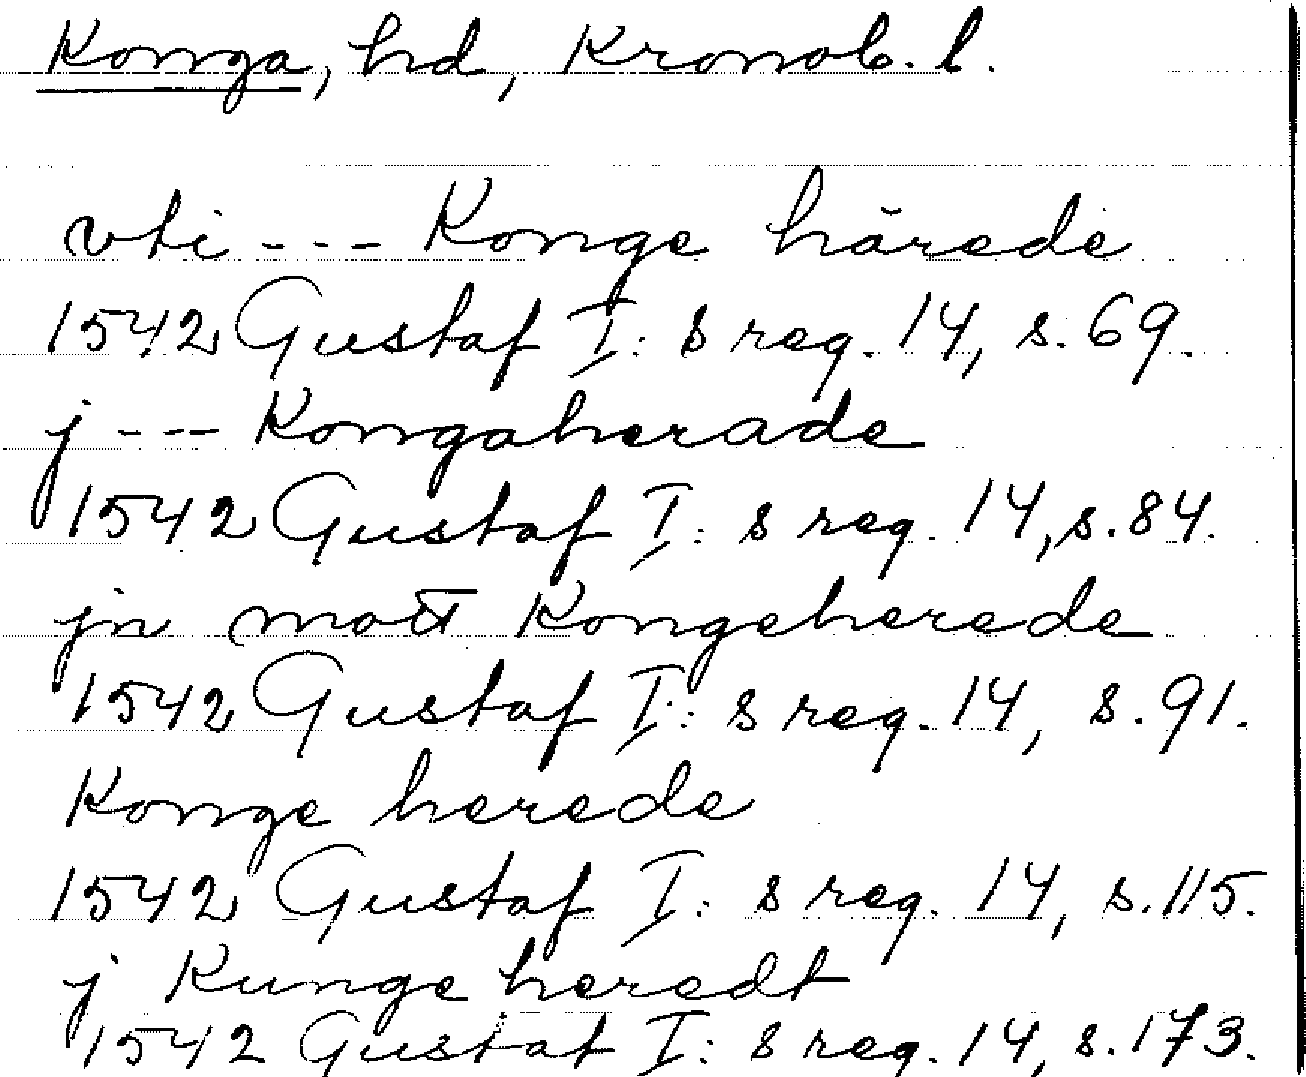 Konga, hd, Kronob. l.
vti --- Konge härede
1542 Gustaf I:s reg. 14, s. 69.
j --- Kongaherade
1542 Gustaf I:s reg. 14, s. 84.
jn mott Kongeherede
1542 Gustaf I:s reg. 14, s. 91.
Konge herede
1542 Gustaf I:s reg. 14, s. 115.
j Kunge heredt
1542 Gustaf I:s reg. 14, s. 173.